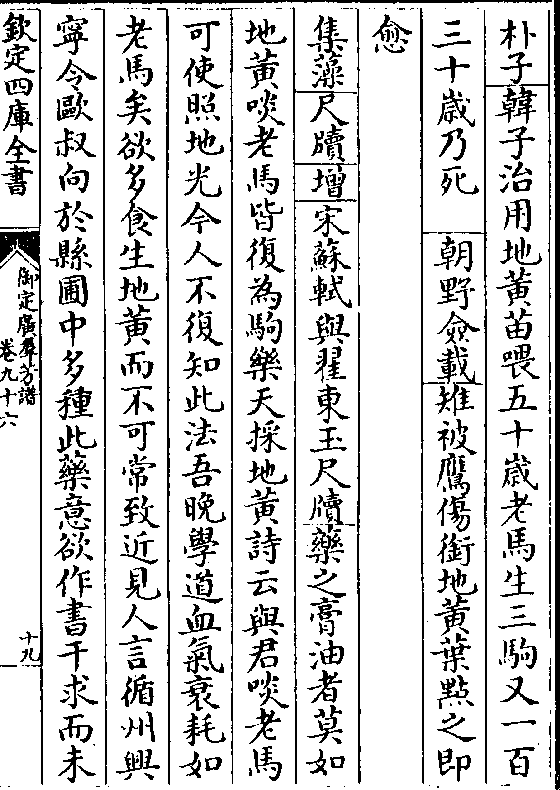 朴子韓子治用地黃苗喂五十歲老馬生三駒又一百
三十歲乃死　朝野僉載雉被鷹傷銜地黃葉點之即
愈
集藻尺牘增宋蘇軾與翟東玉尺牘藥之膏油者莫如
地黃啖老馬皆復為駒樂天採地黃詩云與君啖老馬
可使照地光今人不復知此法吾晚學道血氣衰耗如
老馬矣欲多食生地黃而不可常致近見人言循州興
寧令歐叔向於縣圃中多種此藥意欲作書干求而未
欽定四庫全書
御定廣羣芳譜
卷九十六
十九